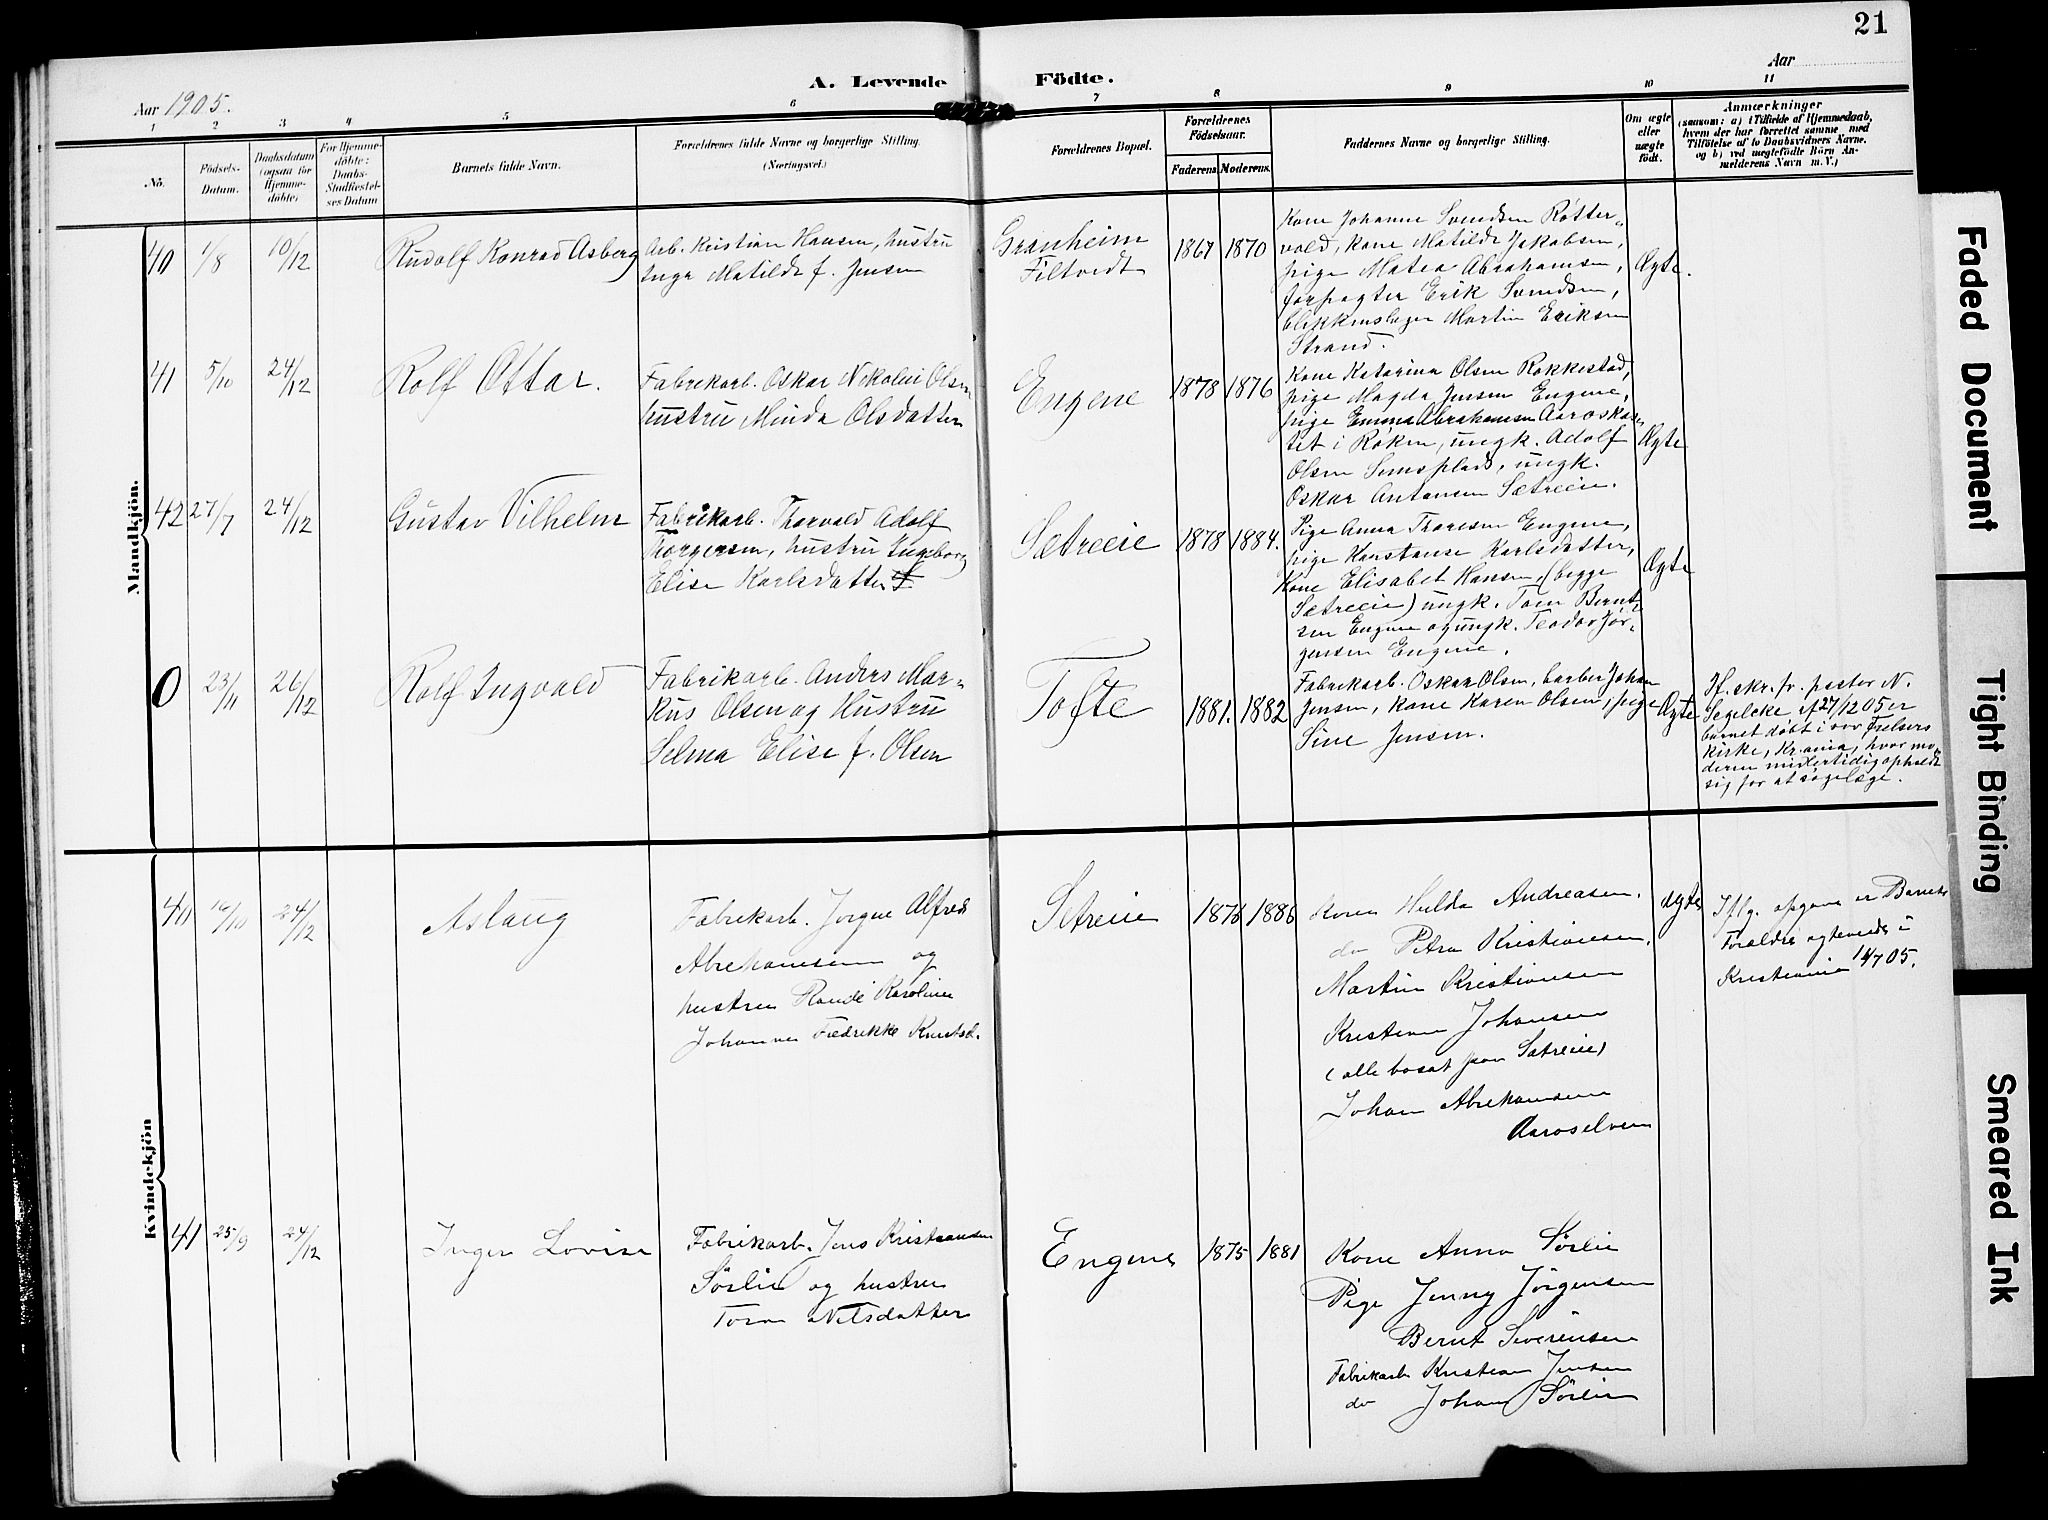 21
A. Levende Födte.
Aar 1905.
Aar
1 2 3 4 5 6 7 8 9 10 11
No.
Födsels-Datum.
Daabsdatum (ogsaa for Hjemmedöbte)
For Hjemmedöbte: Daabs-Stadfæstelses Datum
Barnets fulde Navn.
Forældrenes fulde Navne og borgerlige Stilling.
(Næringsvei.)
Forældrenes Bopæl.
Forældrenes Födselsaar.
Faderens. Moderens.
Faddernes Navne og borgerlige Stilling.
Om ægte eller uægte födt.
Anmærkninger
(saasom: a) i Tilfælde af Hjemmedaab, hvem der har forrettet samme, med Tilföielse af to Daabsvidners Navne, og b) ved uægtefödte Börn Anmelderens Navn m. V.)
Mandkjön.
40 1/8 10/12 Rudolf Konrad Asberg
Arb. Kristian Hansen, hustru
Inga Matilde f. Jensen
Granheim
Filtvedt
1867 1870
Kone Johanne Svendsen Røtter-
vold, kone Matilde Jakobsen,
pige Matea Abrahamsen,
forpagter Erik Svendsen,
blikkenslager Martin Eriksen
Strand.
Ægte.
41 5/10 24/12 Rolf Ottar.
Fabrikarb. Oskar Nikolai Olsen
hustru Minda Olsdatter
Engene
1878 1876
Kone Katarina Olsen Rokkestad,
pige Magda Jensen Engene,
pige Emma Abrahamsen Aaroskas-
tet i Røken, ungk. Adolf
Olsen Semsplads, ungk.
Oskar Antonsen Sætreeie.
Ægte
42 27/7 24/12 Gustav Vilhelm
Fabrikarb. Thorvald Adolf
Thorgersen, hustru Ingeborg
Elise Karlsdatter
Sætreeie
1878 1884.
Pige Anna Thoresen Engene,
pige Konstanse Karlsdatter,
Kone Elisabet Hansen, (begge
Sætreeie) ungk. Tom Bernt-
sen Engene og ungk. Teodor Jør-
gensen Engene.
Ægte
0 23/11 26/12 Rolf Ingvald
Fabrikarb. Anders Mar-
kus Olsen og Hustru
Selma Elise f. Olsen
Tofte
1881. 1882
Fabrikarb. Oskar Olsen, barber Johan
Jensen, kone Karen Olsen, pige
Sine Jensen.
Ægte
If. skr. fr. pastor N.
Segelcke af 27/12 05 er
barnet døbt i vor Frelsers
Kirke, Kr.ania, hvor mo-
deren midlertidig opholdt
sig for at søge læge.
Kvindekjön
40 /10 24/12 Aslaug
Fabrikarb. Jørgen Alfred
Abrahamsen og
hustru Randi Karoline
Johanne Fredrikke Knutsd.
Sætreeie
1876 1886
Kone Hulda Andreasen.
do Petra Kristiansen.
Martin Kristiansen
Kristian Johansen
(alle bosat paa Sætreeie)
Johan Abrahamsen
Aaroselven
ægte
Iflg. opgave er Barnets
Forældre ægteviede i
Kristiania 14/7 05.
41 25/9 24/12 Inger Lovise
Fabrikarb. Jens Kristiansen
Sørlie og hustru
Tora Nilsdatter
Engene
1875 1881
Kone Anna Sørlie
Pige Jenny Jørgensen
Bernt Severensen
Fabrikarb Kristian Jensen
do Johan Sørlie
Faded Document
Tight Binding
Smeared Ink